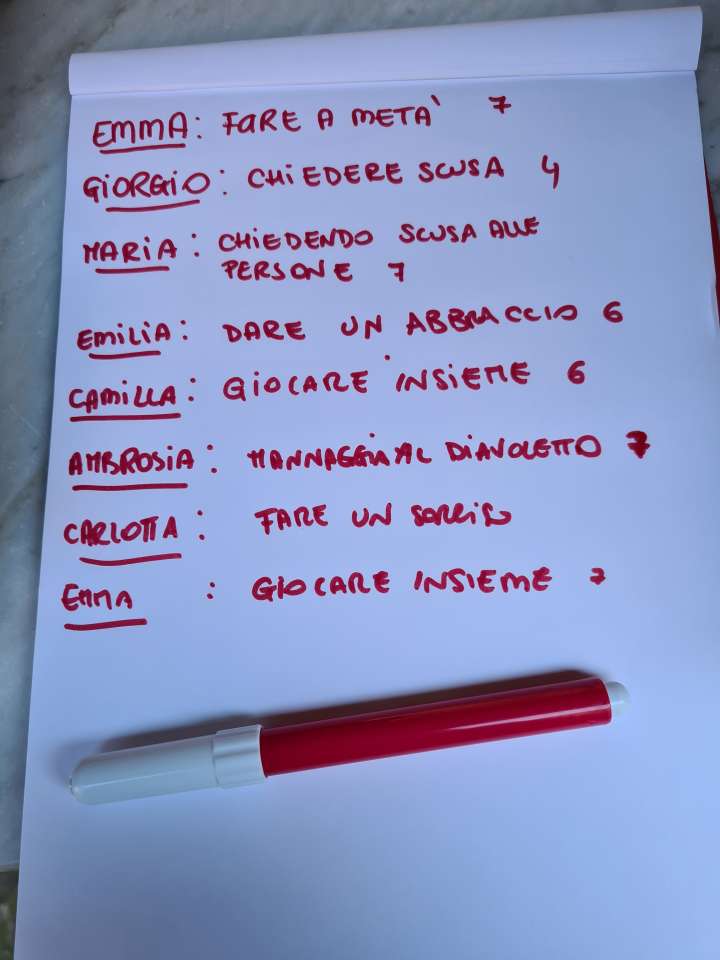 EMMA: FARE A METÀ 7
GIORGIO: CHIEDERE SCUSA 4
MARIA: CHIEDENDO SCUSA ALLE
PERSONE 7
EMILIA: DARE UN ABBRACCIO 6
CAMILLA: GIOCARE INSIEME 6
AMBROSIA: MANNAGGIA AL DIAVOLETTO 7
CARLOTTA: FARE UN SORRISO
EMMA : GIOCARE INSIEME 7